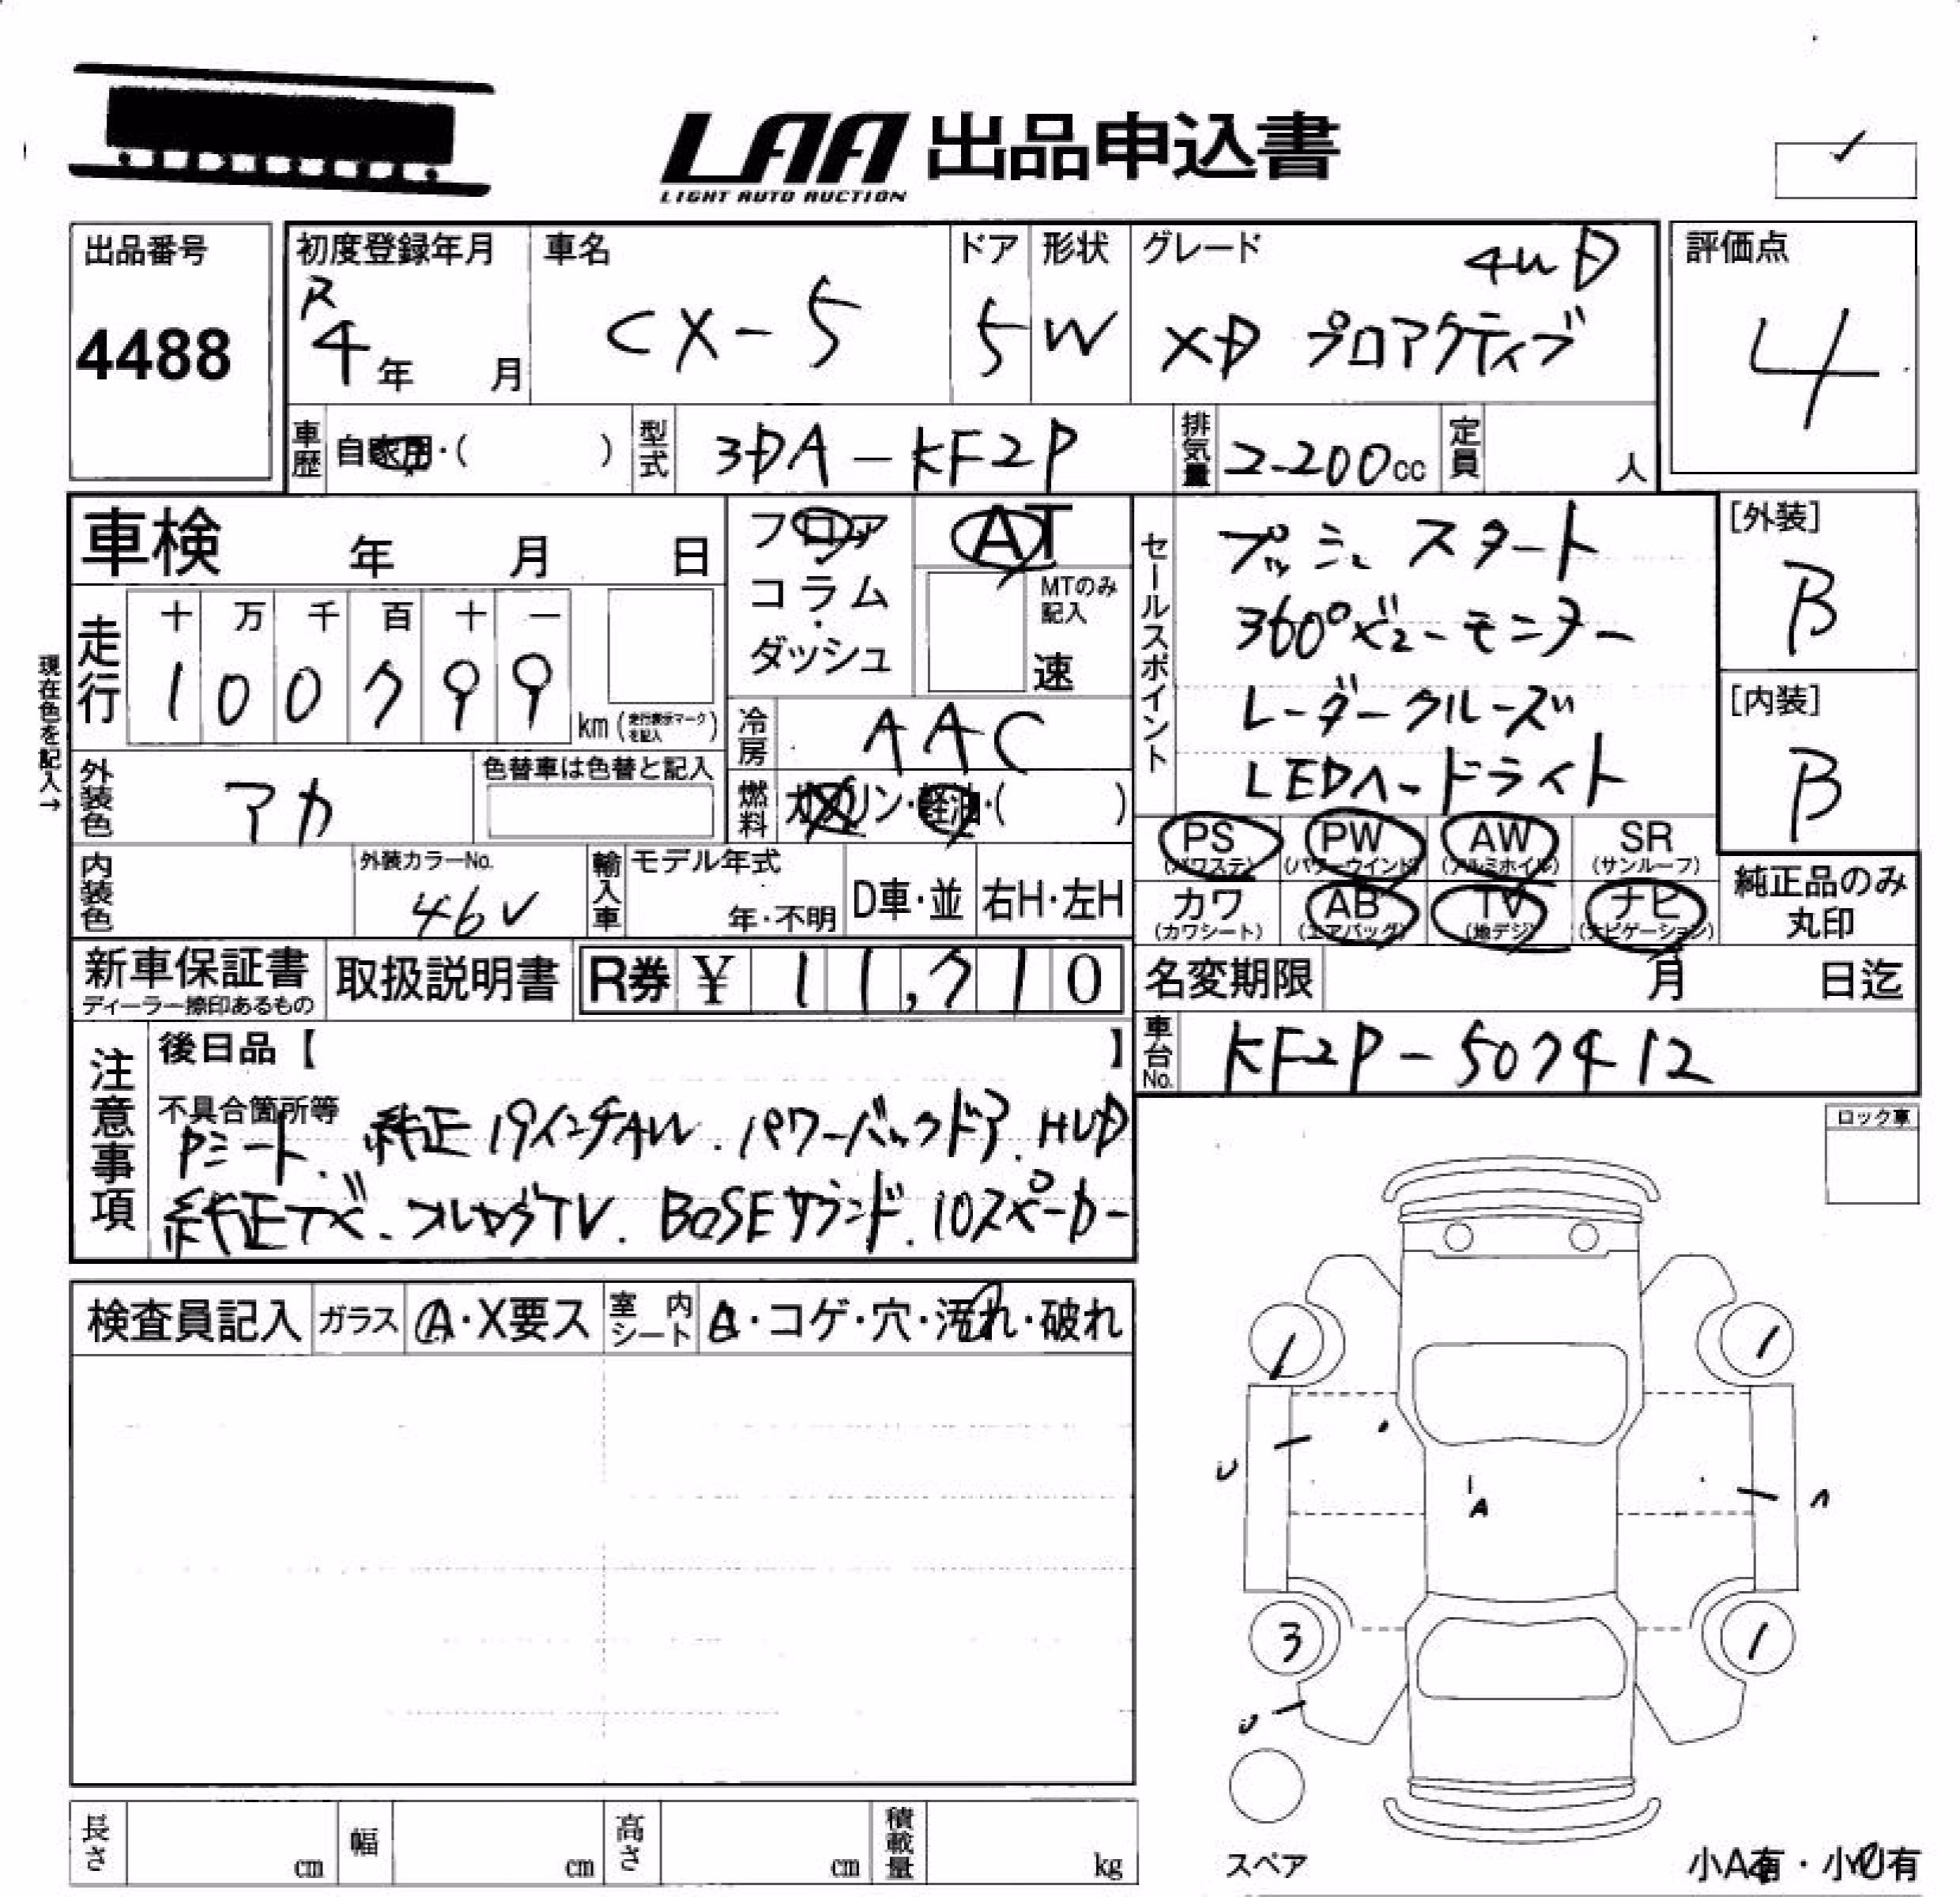 LAA 出品申込書
LIGHT AUTO AUCTION
出品番号
4488
初度登録年月
R
4年 月
車名
CX-5
ドア
5
形状
W
グレード
4WD
XD プロアクティブ
評価点
4
車歴
自家用・( )
型式
3DA-KF2P
排気量
2-200cc
定員
人
車検 年 月 日
フロア
コラム
・
ダッシュ
AT
MTのみ
記入
速
セールスポイント
プッシュスタート
360°ビューモニター
レーダークルーズ
LEDヘードライト
[外装]
B
[内装]
B
現在色を記入→
走行
十 万 千 百 十 一
1 0 0 7 9 9
km (走行表示マークを記入)
冷房
AAC
外装色
アカ
色替車は色替と記入
燃料
ガソリン・軽油・( )
PS
(パワステ)
PW
(パワーウインド)
AW
(アルミホイル)
SR
(サンルーフ)
内装色
外装カラーNo.
46V
輸入車
モデル年式
年・不明
D車・並
右H・左H
カワ
(カワシート)
AB
(エアバッグ)
TV
(地デジ)
ナビ
(ナビゲーション)
純正品のみ
丸印
新車保証書
ディーラー捺印あるもの
取扱説明書
R券 ¥ 11,710
名変期限 月 日迄
注意事項
後日品【 】
不具合箇所等
Pシート. 純正19インチAW. パワーバックドア. HUD
純正ナビ. フルセグTV. BOSEサウンド. 10スピーカー
車台No.
KF2P-507412
ロック車
検査員記入
ガラス
A・X要ス
室内シート
A・コゲ・穴・汚れ・破れ
1
1
U
A
A
3
1
U
スペア
小A有・小U有
長さ cm
幅 cm
高さ cm
積載量 kg